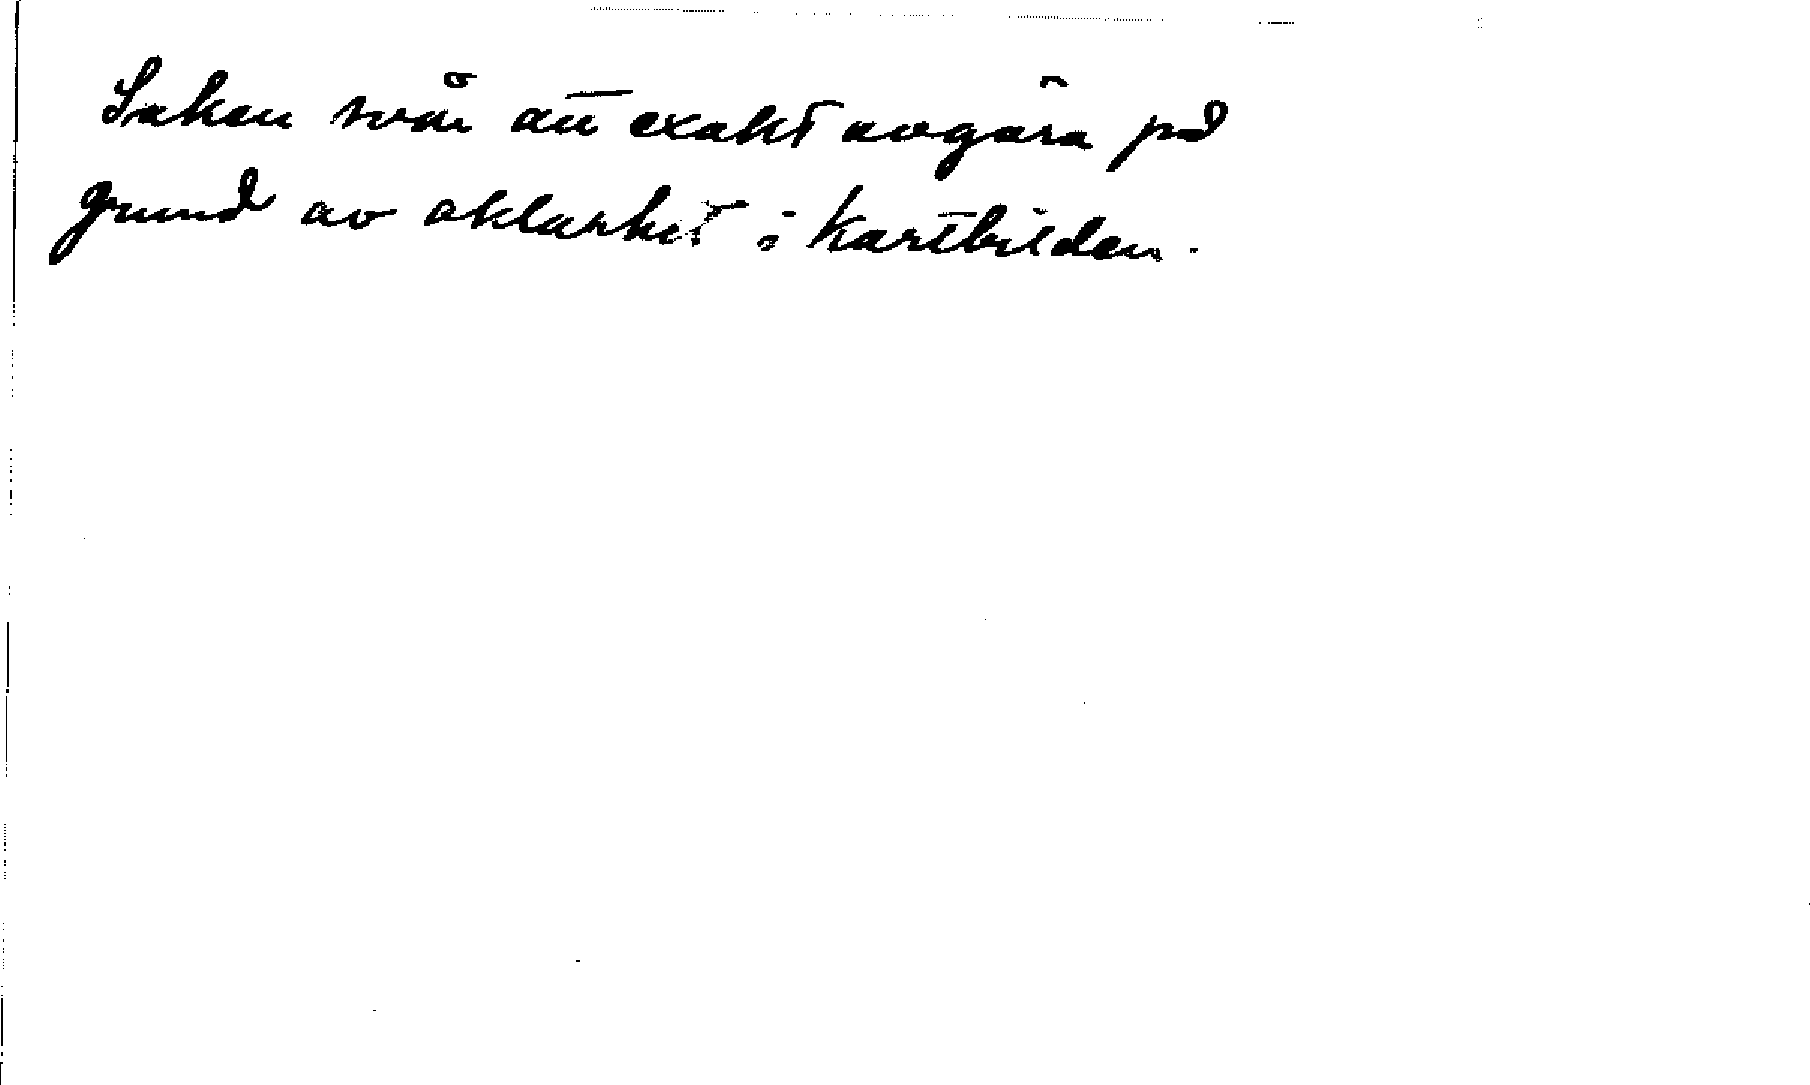 Saken svår att exakt avgöra på
grund av oklarhet i kartbilden.